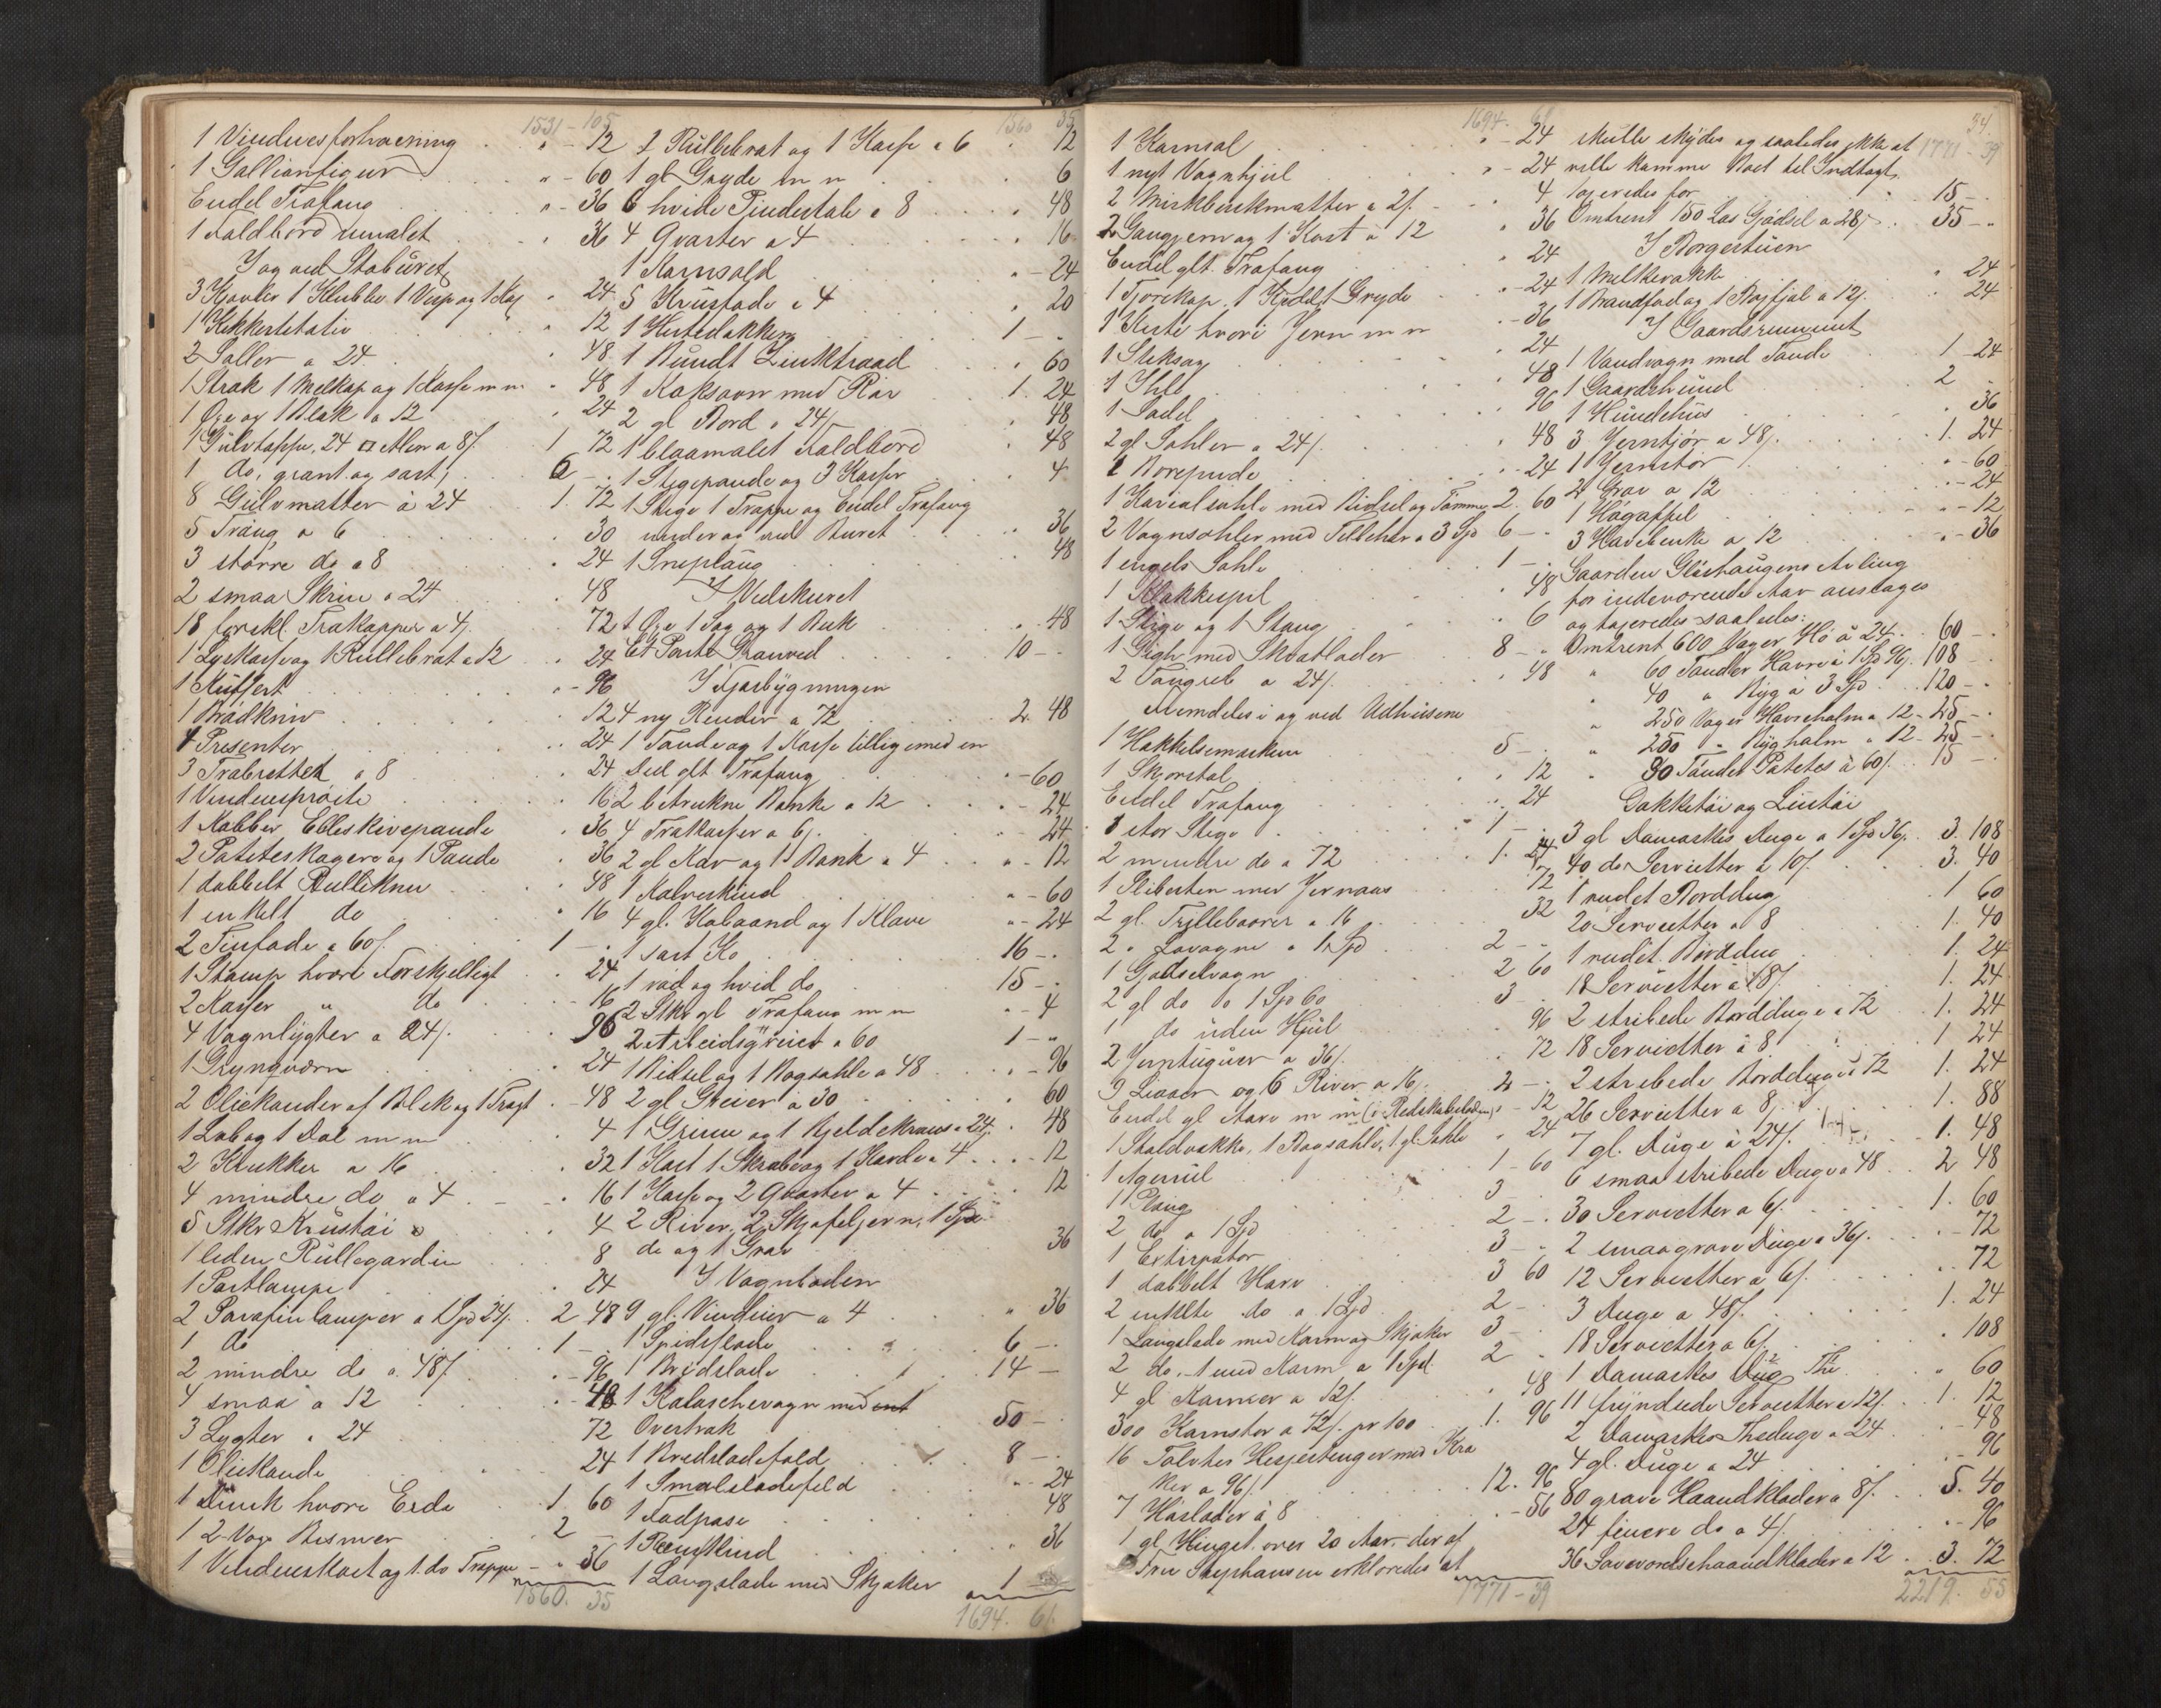 1531 - 105
1 Vinduesforhæning " - 12
1 Gallionfigur " - 60
Endel Trafang " - 36
1 Faldbord umalet " 36
I og ved Staburet
3 Kjævler 1 Klubbe 1 Visp og 1 " 24
1 Kikkertstativ " 12
2 Saller a 24 " 48
1 Melkap og 1 Kasse m m " 48
1 Øxe og 1 Blak a 12 " 24
1 Gulvtæppe, 24 □ Alen a 8/. 1 72
1 do, grønt og sort, 6 - "
8 Gulvmatter à 24 1. 72
5 Traug a 6 30
3 større do a 8 " 24
2 smaa Skrin a 24 48
18 forskl. Trækopper a 4/. 72
1 Lyskasse og 1 Rullebræt a 12 24
1 Kuffert " - 96
1 Brødkniv " 12
4 Presenter " 24
3 Træbretter a 8 " 24
1 Vinduesprøite 16
1 Kobber Ebleskivepande " 36
2 Poteteskogere og 1 Pande " 36
1 dobbelt Rullekniv 48
1 enkelt do " 16
2 Tinfade a 60/. 1 - "
1 Stamp hvori Forskjelligt " 24
2 Kasser " do 16
4 Vognlygter a 24/. 96
1 Grynqværn 24
2 Oliekander af Blek og 1 Tragt " - 48
1 Lob og 1 Dal m m 4
2 Klukker a 16 " 32
4 mindre do a 4 " 16
5 Stkr Krustøi 4
1 liden Rullegardin 8
1 Portlampe " 24
2 Parafinlamper a 1 Spd 24/. 2 48
1 do 1 - "
2 mindre do a 48/. " - 96
4 smaa a 12 " - 48
3 Lygter a 24 72
1 Oliekande 24
1 Dunk hvori Erde 1. 60
1 2-Vogs Bismer 2 -
1 Vindueskost og 1. do Trappe - " 36
1560. 35
1560 35
2 Rullebræt og 1 Kasse a 6 " 12
1 gl Gryde m m 6
6 hvide Pindestole a 8 " 48
4 Qvaster a 4 " 16
1 Kornsold " - 24
5 Krusfade a 4 " 20
1 Hestedækken 1 - "
1 Bundt Zinktraad " 60
1 Kaksovn med Rør 1. 24
2 gl Bord a 24/. " 48
1 blaamalet Faldbord " 48
1 Stegepande og 3 Kasser " 4
1 Stige 1 Trappe og Endel Trafang
under og ved Buret " 36
1 Sneplaug " 48
I Vedskuret
1 Øxe 1 Sag og 1 Buk " 48
Et Parti Granved 10 - "
I Fjøsbygningen
4 ny Render a 72 2. 48
1 Tønde og 1 Kasse tilligemed en
Del glt Trafang " - 60
2 betrukne Bænke a 12 " - 24
4 Trækasser a 6/. " - 24
2 gl Kar og 1 Bænk a 4 " - 12
1 Kalveskind " - 60
4 gl. Kobaand og 1 Klave " - 24
1 sort Ko 16 - "
1 rød og hvid do 15 - "
2 Stkr gl Trafang m m " - 4
2 Arbeidsgreier a 60 1 - "
1 Bidsel og 1 Bogsahle a 48 " - 96
2 gl Greier a 30 " 60
1 Grime og 1 Bjeldekrans a 24/. " 48
1 Kost 1 Skrabe og 1 Karde a 4 " - 12
1 Kasse og 2 Qvaster a 4 " 12
2 River, 2 Skjøfeljern, 1 Spa
de og 1 Grav 36
I Vognboden
9 gl. Vinduer a 4 " 36
1 Spidsslæde 6 - "
1 Bredslæde 14 -
1 Kaleschevogn med
Overtræk 50 - "
1 Bredslædefæld 8 - "
1 Smalslædefeld " - 24
1 Fodpose 48
1 Renskind " 36
1 Langslæde med Skjæker 1 -
1694. 61.
1694. 61.
1 Kornsol " - 24
1 nyt Vognhjul " - 24
2 Mirkbenkmatter a 2/. 4
2 Gangjern og 1 Kost à 12 " 36
Endel glt. Trafang " 24
1 Tjorekop, 1 Kjedel 1 Gryde " - 24
1 Kiste hvori Jern m m " - 36
1 Stiksag " 24
1 Ihle " 48
1 Sadel 96
2 gl. Sahler a 24/. " 48
1 Borepude " - 24
1 Karialsahle med Bidsel og Tømme 2. 60
2 Vognsahler med Tilbehør a 3 Spd 6 - "
1 engels Sahle 1 - "
1 Klokkespil " 48
1 Stige og 1 Stang " 6
1 Gigh med Skvætlæder 8 - "
2 Tougreb a 24/. " 48
Fremdeles i og ved Udhusene
1 Hakkelsemaskin 5 - "
1 Skjorstol " 12
Endel Trafang " 24
1 stor Stige 1 - "
2 mindre do a 72 1. 24
1 Slibesten mer Jernaas " 72
2 gl. Trillebaarer a 16 32
2 " Lovogne a 1 Spd 2 - "
1 Gjødselvogn 2 60
2 gl do a 1 Spd 60 3 - "
1 do uden Hjul " 96
2 Jerntuguer a 36/. " 72
9 Liaaer og 6 River a 16/. 2 - "
Endel gl Aare m m (i Redskabsboden) " - 12
1 Stoldvakke, 1 Bogsahle, 1 gl. Sahle " 24
1 Agerrul 1 - 60
1 Plaug 3 - "
2 do a 1 Spd 2 - "
1 Extirpator 3 - "
1 dobbelt Harv 3 60
2 enkelte do a 1 Spd 2 - "
1 Langslæde med Karm og Skjæker 3 -
2 do. - 1 med Karm a 1 Spd 2 "
4 gl Karmer a 12/. " 48
300 Kornstør a 72/. pr 100 1. 96
16 Tolvter Hesjestenger med Kra
ker a 96/. 12. 96
7 Høslæder à 8 " - 56
1 gl. Hingst. over 20 Aar. der af
Fru Stephansen erklæredes at
1771 - 39
54.
1771 - 39
skulle skydes og saaledes ikke at
ville komme Boet til Indtægt.
taxeredes for 15 - "
Omtrent 150 Las Gjødsel a 28/. 35 - "
I Borgestuen
1 Melkevakke " 24
1 Brandfad og 1 Bagfjøl a 12/. " 24
I Gaardsrummet
1 Vandvogn med Tønde 1 - 24
1 Gaardshund 2 -
1 Hundehus " 36
3 Jerntjør a 48/. 1. 24
1 Jernstør " - 60
2 Grav a 12 " - 24
1 Høgaffel " - 12
3 Havebenke a 12 " - 36
Gaarden Gløshaugens Avling
for indeværende Aar ansloges
og taxeredes saaledes:
Omtrent 600 Voger Hø à 24 60 - "
" 60 Tønder Havre a 1 Spd 96/. 108 -
" 40 " Byg à 3 Spd 120 - "
" 250 Voger Havrehalm a 12 - 25 - "
" 250 " Byghalm a 12 - 25 - "
" 30 Tønder Potetes à 60/. 15 - "
Dækketøi og Lintøi
3 gl Damaskes Duge a 1 Spd 36/. 3. 108
40 do Servietter a 10/. 3. 40
1 rudet Borddug 1 60
20 Servietter a 8 1. 40
1 rudet. Borddug 1. 24
18 Servietter à 8/. 1. 24
2 stribede Bordduge a 72 1. 24
18 Servietter à 8 1 24
2 stribede Bordduge a 72 1. 24
26 Servietter a 8/. 1. 88
7 gl. Duge à 24/. 1. 48
6 smaa stribede Duge a 48 2 48
30 Servietter a 6/. 1. 60
2 smaa grove Duge a 36/. " - 72
12 Servietter a 6/. " 72
3 Duge a 48/. 1. 24
18 Servietter a 6/. " 108
1 Damaskes Dug The " 60
11 fryndsede Servietter a 12/. 1. 12
2 Damaskes Theduge a 24 " - 48
4 gl. Duge a 24 " - 96
80 grove Haandklæder a 8/. 5. 40
24 finere do a 4/. " - 96
36 Soveværelsehaandklæder a 12 3. 72
2219. 55